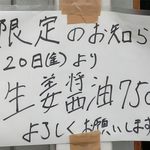 限定のお知ら
20日(金)より
生姜醤油750
よろしくお願いします